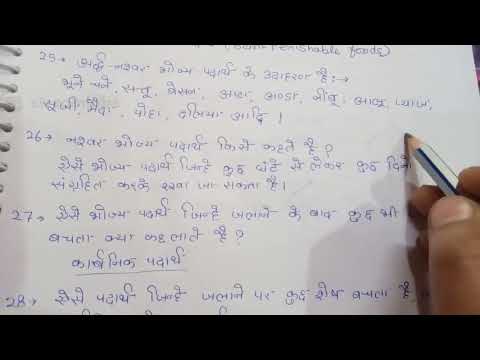 (Semi Perishable foods)
25→ अर्द्ध नश्वर भोज्य पदार्थ के उदाहरण है:→
भूने चने, सत्तू, बेसन, आटा, अण्डा, नींबू, आलू, प्याज,
सूजी, मैदा, पोहा, दलिया आदि।
26→ नश्वर भोज्य पदार्थ किसे कहते है?
ऐसे भोज्य पदार्थ जिन्हे कुछ घंटे से लेकर कुछ दिनों
संग्रहित करके रखा जा सकता है।
27→ ऐसे भोज्य पदार्थ जिन्हे जलाने के बाद कुछ भी
बचता क्या कहलाते है?
कार्बनिक पदार्थ
28→ ऐसे पदार्थ जिन्हे जलाने पर कुछ शेष बचता है,